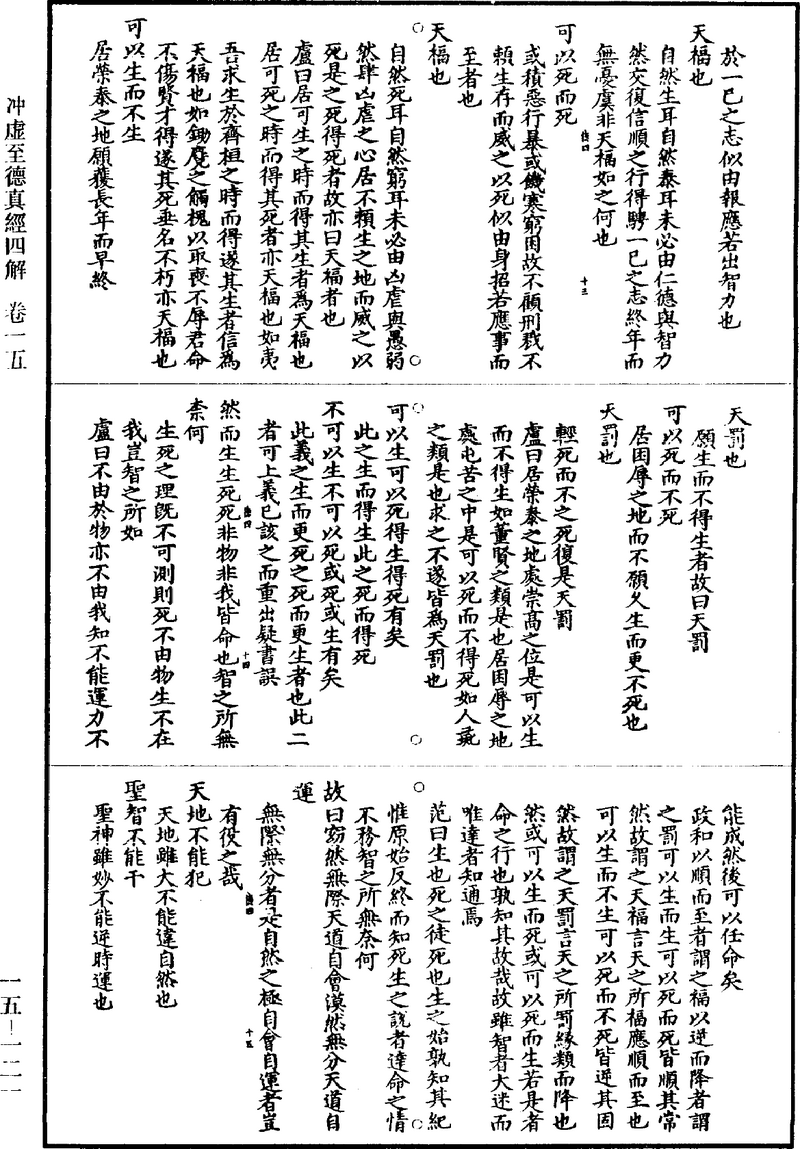 於一已之志似由報應若出智力也
天福也
自然生耳自然泰耳未必由仁德與智力
然交復信順之行得騁一已之志終年而
無憂虞非天福如之何也
可以死而死
或積惡行暴或饑寒窮困故不顧刑戮不
賴生存而威之以死似由身招若應事而
至者也
天福也
自然死耳自然窮耳未必由凶虐與愚弱
然肆凶虐之心居不賴生之地而威之以
死是之死得死者故亦曰天福者也
盧曰居可生之時而得其生者為天福也
居可死之時而得其死者亦天福也如夷
吾求生於齊桓之時而得遂其生者信為
天福也如鋤麑之觸槐以取喪不辱君命
不傷賢才得遂其死垂名不朽亦天福也
可以生而不生
居榮泰之地願獲長年而早終
天罰也
願生而不得生者故曰天罰
可以死而不死
居困辱之地而不願久生而更不死也
天罰也
輕死而不之死復是天罰
盧曰居榮泰之地處崇高之位是可以生
而不得生如董賢之類是也居困辱之地
處屯苦之中是可以死而不得死如人彘
之類是也求之不遂皆為天罰也
可以生可以死得生得死有矣
此之生而得生此之死而得死
不可以生不可以死或死或生有矣
此義之生而更死之死而更生者也此二
者可上義已該之而重出疑書誤
然而生生死死非物非我皆命也智之所無
柰何
生死之理既不可測則死不由物生不在
我豈智之所如
盧曰不由於物亦不由我知不能運力不
能成然後可以任命矣
政和以順而至者謂之福以逆而降者謂
之罰可以生而生可以死而死皆順其常
然故謂之天福言天之所福應順而至也
可以生而不生可以死而不死皆逆其固
然故謂之天罰言天之所罰緣類而降也
然或可以生而死或可以死而生若是者
命之行也孰知其故哉故雖智者大迷而
唯達者知通焉
范曰生也死之徒死也生之始孰知其紀
惟原始反終而知死生之說者達命之情
不務智之所無奈何
故曰窈然無際天道自會漠然無分天道自
運
無際無分者是自然之極自會自運者豈
有役之哉
天地不能犯
天地雖大不能違自然也
聖智不能干
聖神雖妙不能逆時運也
冲虛至德真經四解　卷一五
一五—一二一
十三
十四
十五